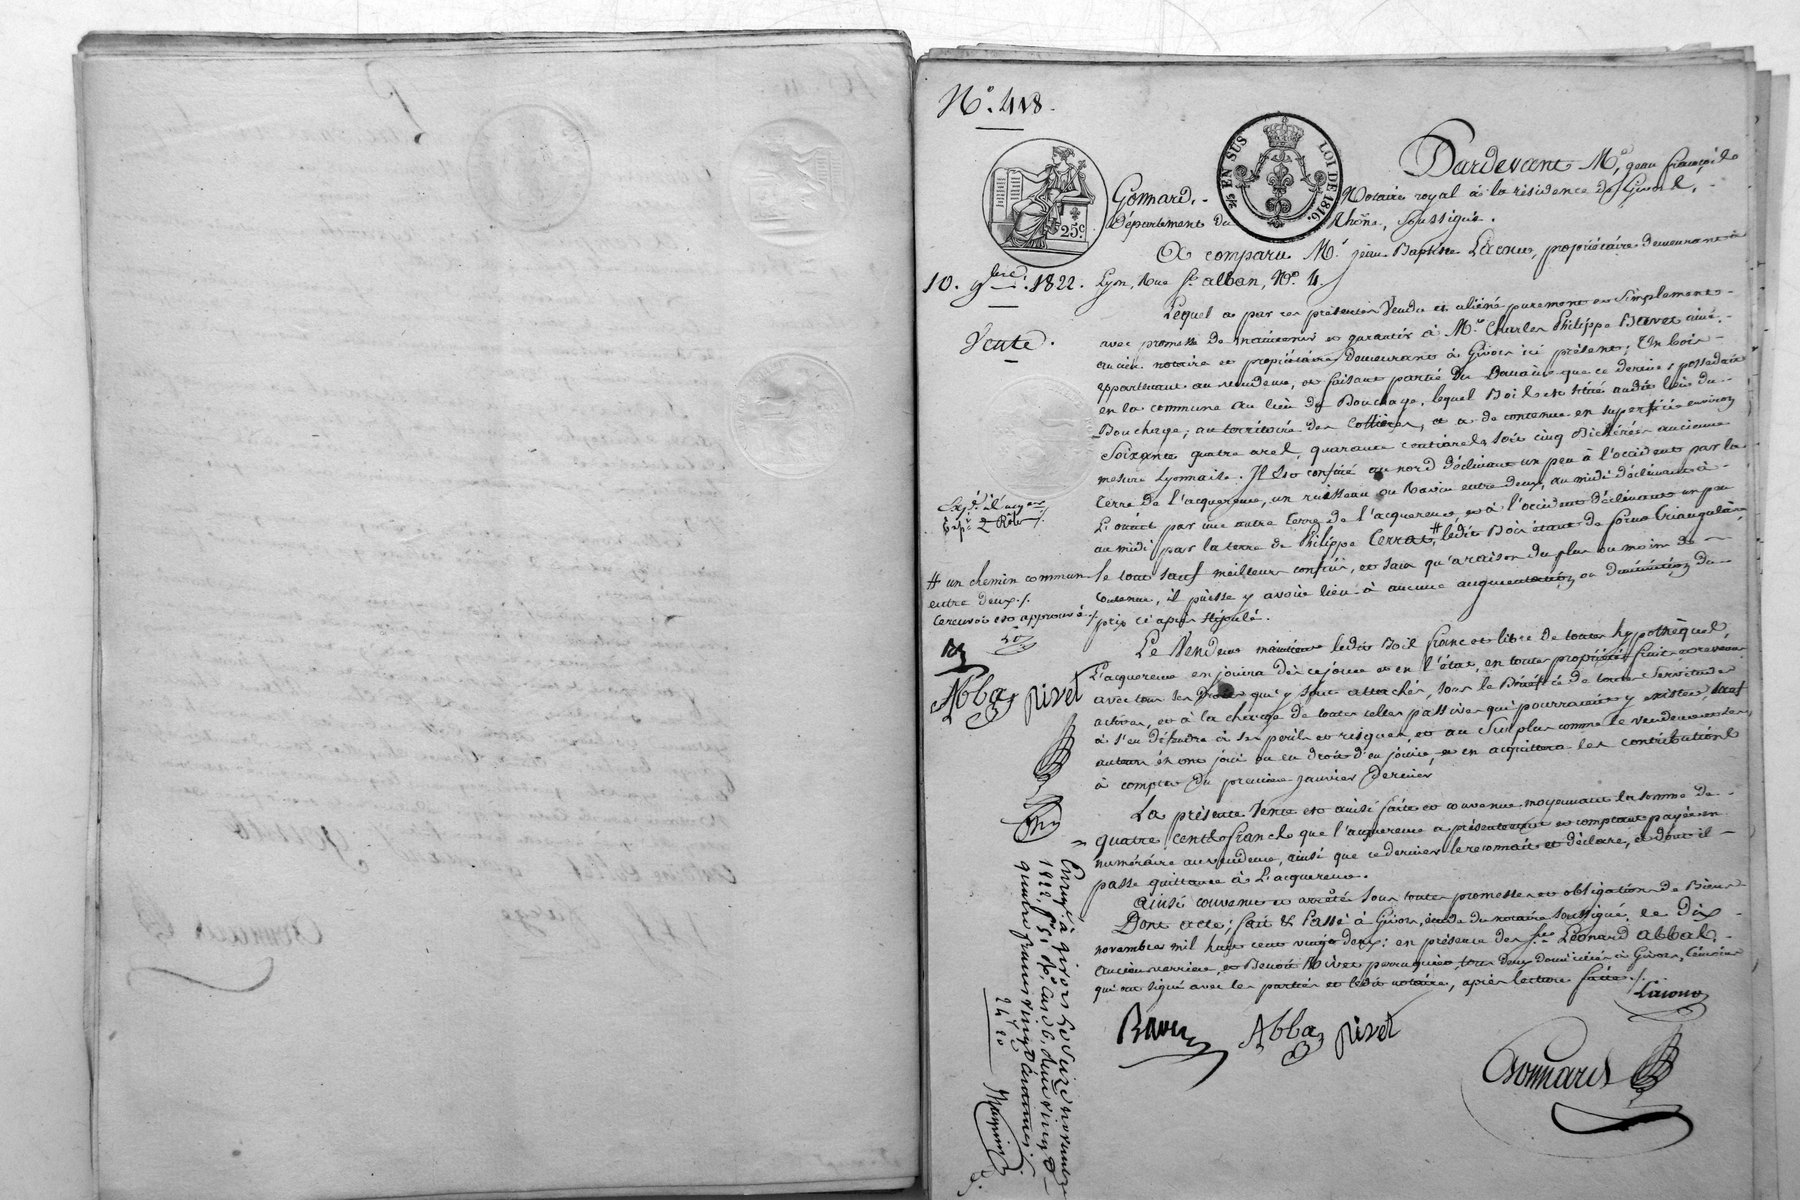 N.º 418.
EN SUS LOI DE 1816.
25c.
Pardevant Mº. jean françois
Gonnard, Notaire royal à la résidence de Givors,
Département du Rhône, soussigné.
A comparu Mr. jean Baptiste Lacono, propriétaire demeurant à
10. 9bre. 1822.
Lyon, Rue St. alban, Nº. 4.
Vente.
Lequel a par ces présentes Vendu et aliéné purement et simplement
avec promesse de maintenir et garantir à Mr. Charles Philippe Bavet ainé,
ancien notaire et propriétaire demeurant à Givors ici présent; Un bois
appartenant au vendeur, et faisant partie du Domaine que ce dernier possedait
en la commune au lieu du Bouchage, lequel Bois est situé audit lieu du
Bouchage, au territoire des Cottieres, et a de contenue en superficie environ
Soixante quatre ares, quarante centiares, soit cinq Bicherées ancienne
mesure Lyonnaise. Il est confiné au nord déclinant un peu à l'occident par la
terre de l'acquereur, un ruisseau ou Ravin entre deux, au midi déclinant à
L'orient par une autre terre de l'acquereur, et à l'occident déclinant un peu
au midi par la terre de Philippe Cerrat, # ledit Bois étant de forme triangulaire
le tout sauf meilleurs confins, et sans qu'a raison du plus ou moins de
contenue, il puisse y avoir lieu à aucune augmentation ou diminution du
prix ci après stipulé.
Expé. à l'acqer.
2 Rôles
# un chemin commun
entre deux./.
Ce renvoi est approuvé./.
Abbal Rivet
Le Vendeur maintient ledit Bois franc et libre de toutes hypothèques,
L'acquereur en jouira dès ce jour et en l'état, en toute propriété fruits et revenus
avec tous ses droits qui y sont attachés, sous le Bénéfice de toutes servitudes
actives, et à la charge de toutes celles passives qui pourraient y exister, sauf
à s'en défendre à ses perils et risques, et au surplus comme le vendeur et ses
auteurs en ont joui ou eu droit d'en jouir, et en acquittera les contributions
à compter du premier janvier dernier
La présente Vente est ainsi faite et convenue moyennant la somme de
quatre cents francs que l'acquereur a présentement et comptant payée en
numéraire au vendeur, ainsi que ce dernier le reconnait et déclare, et dont il
passe quittance à L'acquereur.
Ainsi convenu et arrêté sous toute promesse et obligation de Biens
Dont acte; fait & Passé à Givors, étude du notaire soussigné, le dix
novembre mil huit cent vingt deux; en présence des srs. Léonard Abbal,
ancien verrier, et Benoît Rivet perruquier, tous deux domiciliés à Givors, témoins
qui ont signé avec les parties et ledit notaire, après lecture faite./.
Lacono
Abbal Rivet
Gonnard
Enregé. à givors le seize novembre
1822. fº 51 Rº. Case 6. Reçu vingt
quatre francs vingt centimes
24 20